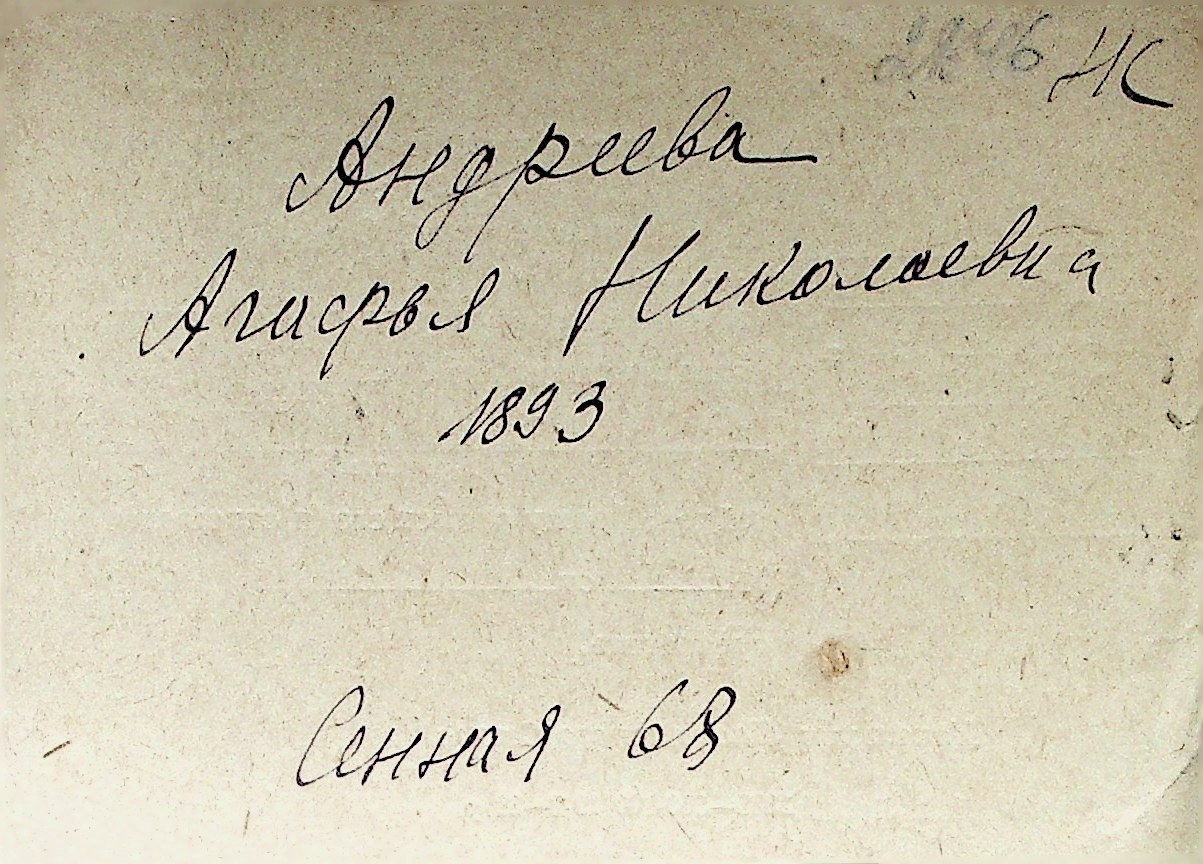 НС
Андреева
Агафья Николаевна
1893
Сенная 68